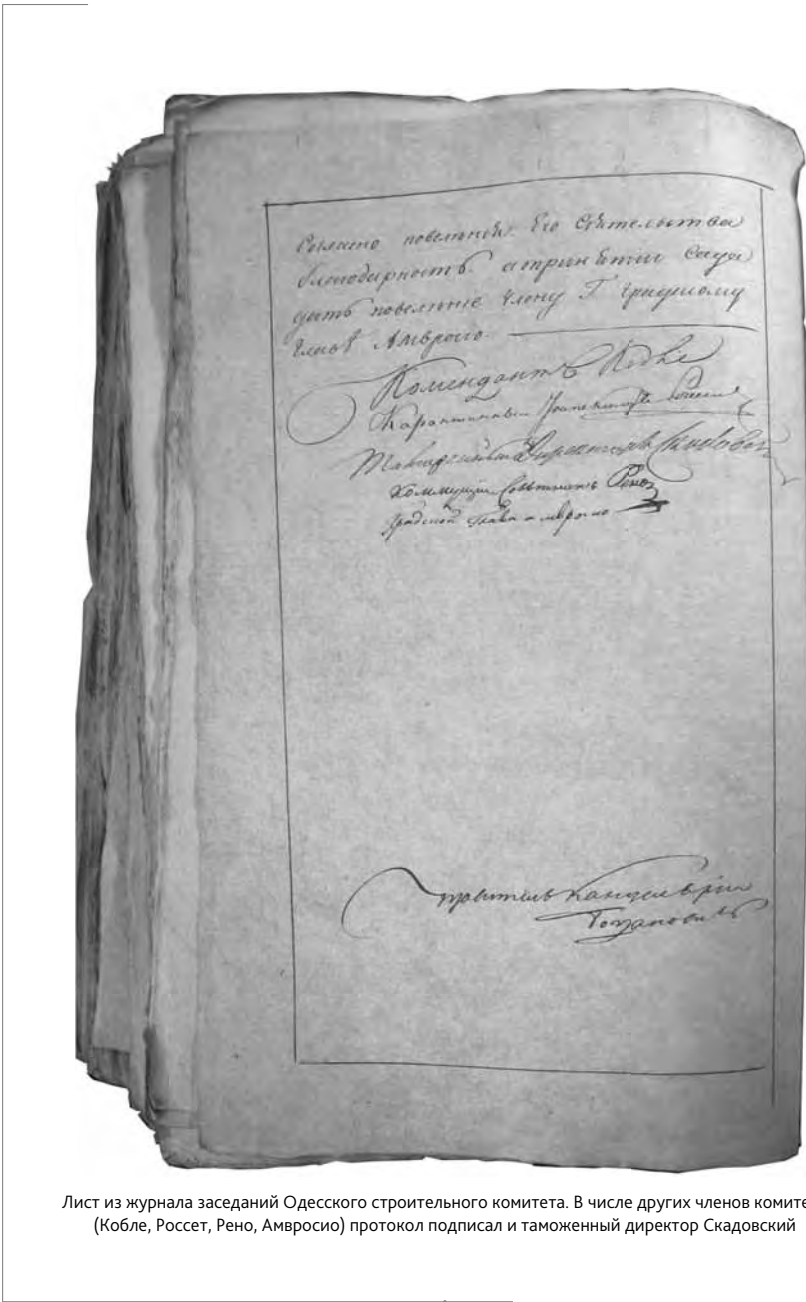 Согласно повеленiя Его Сiятельства
благодарность
дать повеленiе члену Г градскому
главѣ Амвросiо.
Комендантъ Кобле
Карантинный Инспекторъ Россетъ
Таможенный Директоръ Скадовской
Коммерцiи Советникъ Рено
Градской Глава амвросiо
Правитель Канцелярiи
Лист из журнала заседаний Одесского строительного комите
(Кобле, Россет, Рено, Амвросио) протокол подписал и таможенный директор Скадовский